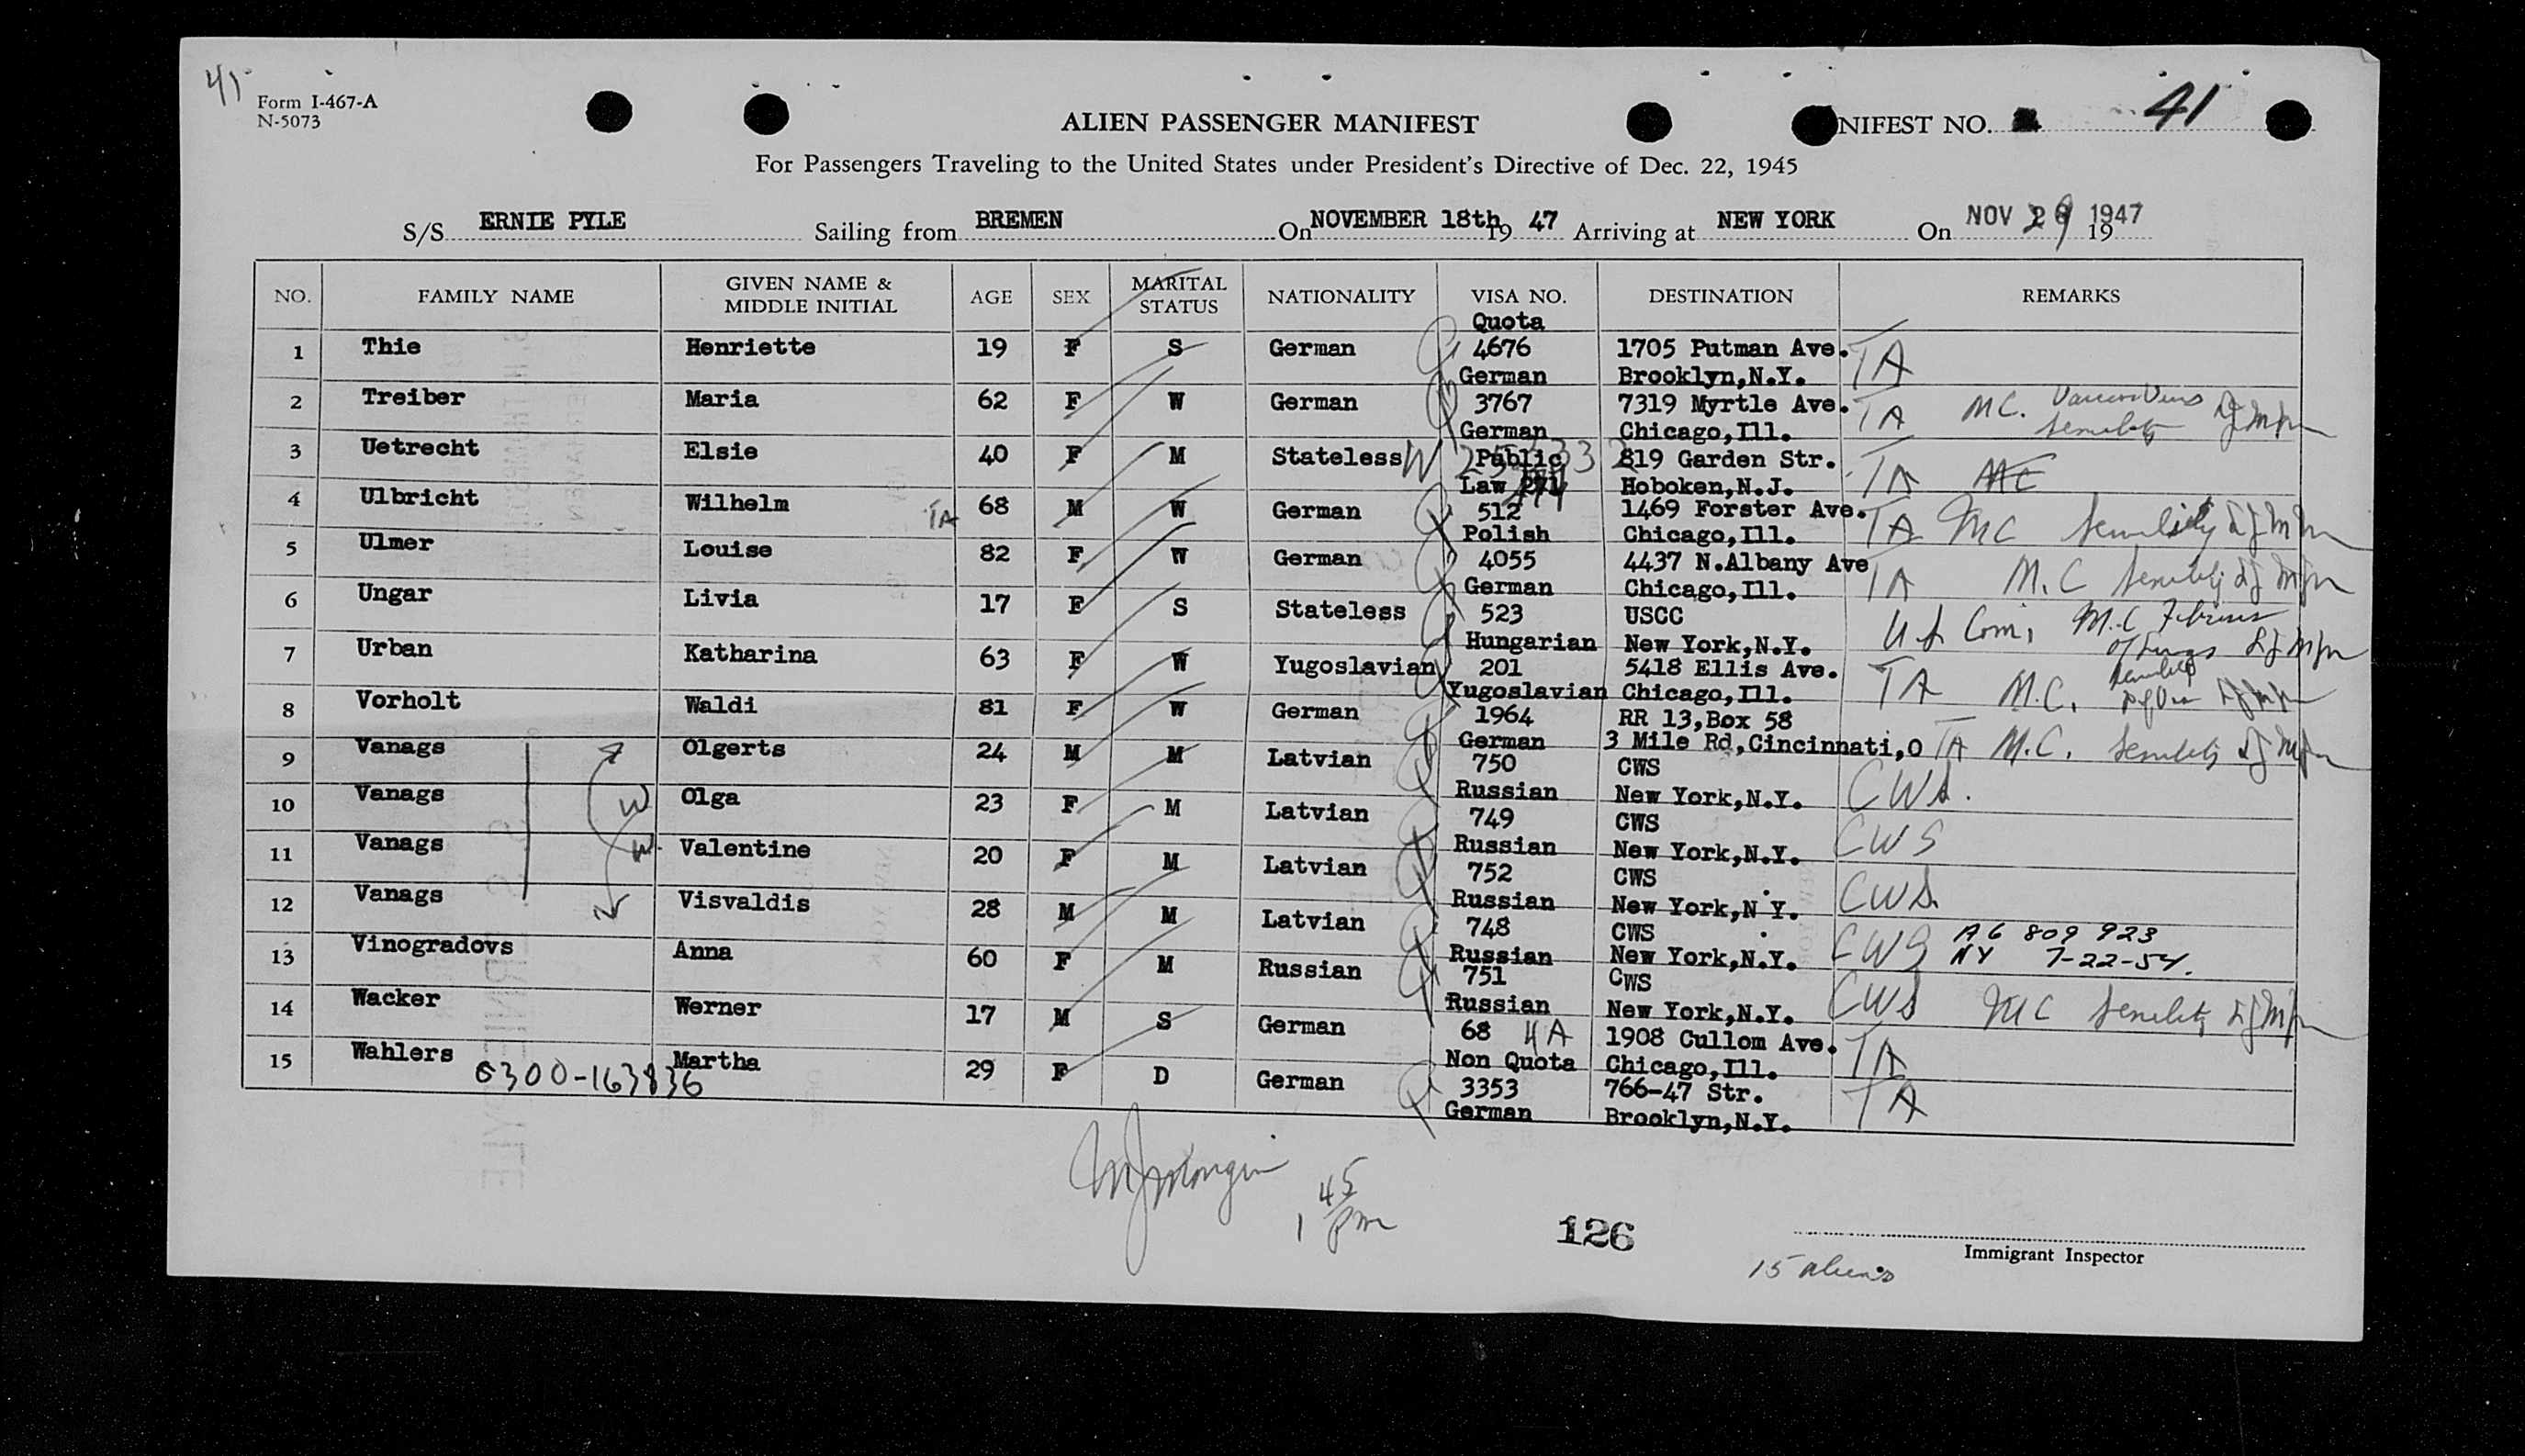 41
Form I-467-A
N-5073
ALIEN PASSENGER MANIFEST
NIFEST NO. 41
For Passengers Traveling to the United States under President's Directive of Dec. 22, 1945
S/S ERNIE PYLE Sailing from BREMEN On NOVEMBER 18th 19 47 Arriving at NEW YORK On NOV 29 1947 19
NO. FAMILY NAME GIVEN NAME & MIDDLE INITIAL AGE SEX MARITAL STATUS NATIONALITY VISA NO. DESTINATION REMARKS
Quota
1 Thie Henriette 19 F S German 4676 1705 Putman Ave. TA
German Brooklyn,N.Y.
2 Treiber Maria 62 F W German 3767 7319 Myrtle Ave. TA MC.
German Chicago,Ill.
3 Uetrecht Elsie 40 F M Stateless Public 819 Garden Str. TA MC
Law Hoboken,N.J.
4 Ulbricht Wilhelm TA 68 M W German 512 1469 Forster Ave. TA MC Senility
Polish Chicago,Ill.
5 Ulmer Louise 82 F W German 4055 4437 N.Albany Ave TA M.C Senility
German Chicago,Ill.
6 Ungar Livia 17 F S Stateless 523 USCC U S Com, M.C Fibrosis
Hungarian New York,N.Y. of lungs
7 Urban Katharina 63 F W Yugoslavian 201 5418 Ellis Ave. TA M.C. Senility
Yugoslavian Chicago,Ill.
8 Vorholt Waldi 81 F W German 1964 RR 13,Box 58
German 3 Mile Rd,Cincinnati,O TA M.C. Senility
9 Vanags Olgerts 24 M M Latvian 750 CWS
Russian New York,N.Y. CWS.
10 Vanags W Olga 23 F M Latvian 749 CWS
Russian New York,N.Y. CWS
11 Vanags W. Valentine 20 F M Latvian 752 CWS
Russian New York,N Y. CWS
12 Vanags Visvaldis 28 M M Latvian 748 CWS A6 809 923
Russian New York,N.Y. CWS NY 7-22-54.
13 Vinogradovs Anna 60 F M Russian 751 CWS
Russian New York,N.Y. CWS MC Senility
14 Wacker Werner 17 M S German 68 4A 1908 Cullom Ave.
Non Quota Chicago,Ill. TA
15 Wahlers 0300-163836 Martha 29 F D German 3353 766-47 Str. TA
German Brooklyn,N.Y.
1 45 pm
126
15 aliens
Immigrant Inspector